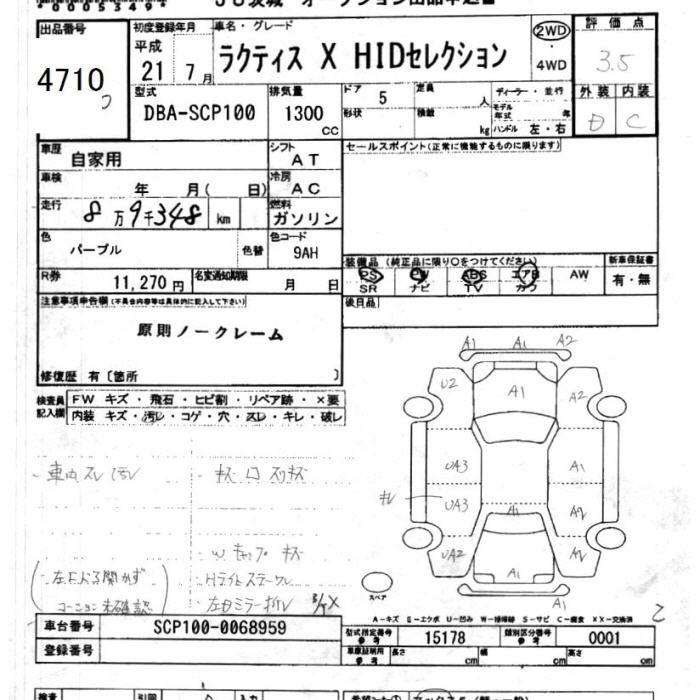 00005349
JU茨城 オークション出品申込書
出品番号
4710
初度登録年月
平成
21年7月
車名・グレード
ラクティス X HIDセレクション
2WD
・
4WD
評価点
3.5
外装 内装
D C
型式
DBA-SCP100
排気量
1300
cc
ドア 5
形状
定員 人
積載 kg
ディーラー・並行
モデル年式 年
ハンドル 左・右
車歴
自家用
シフト
AT
セールスポイント(正常に機能するものに限ります)
車検
年 月( 日)
冷房
AC
走行
8万9千348 km
燃料
ガソリン
色
パープル
色替
色コード
9AH
装備品(純正品に限り○をつけてください)
PS PW ABS エアB AW
SR ナビ TV カワ
新車保証書
有・無
R券
11,270円
名変通知期限
月 日
後日品
注意事項申告欄(不具合内容等は具体的に記入して下さい)
原則ノークレーム
修復歴 有〔箇所
検査員記入欄
FW キズ・飛石・ヒビ割・リペア跡・×要
内装 キズ・汚レ・コゲ・穴・スレ・キレ・破レ
A1 A1 A2
U2 A1 A2
UA3 A1
キレ UA3 A1 A2
UA2 A1 A2
A1
スペア
・車内スレ汚レ
・キズ凹スリキズ
・Wキャップキズ
・Hライトステークル
・左右ミラー折レ
コーション未確認
A-キズ E-エクボ U-凹み W-補修跡 S-サビ C-腐食 XX-交換済
2
車台番号
SCP100-0068959
登録番号
型式指定番号
参考
15178
類別区分番号
参考
0001
車庫証明用
参考
長さ cm
幅 cm
高さ cm